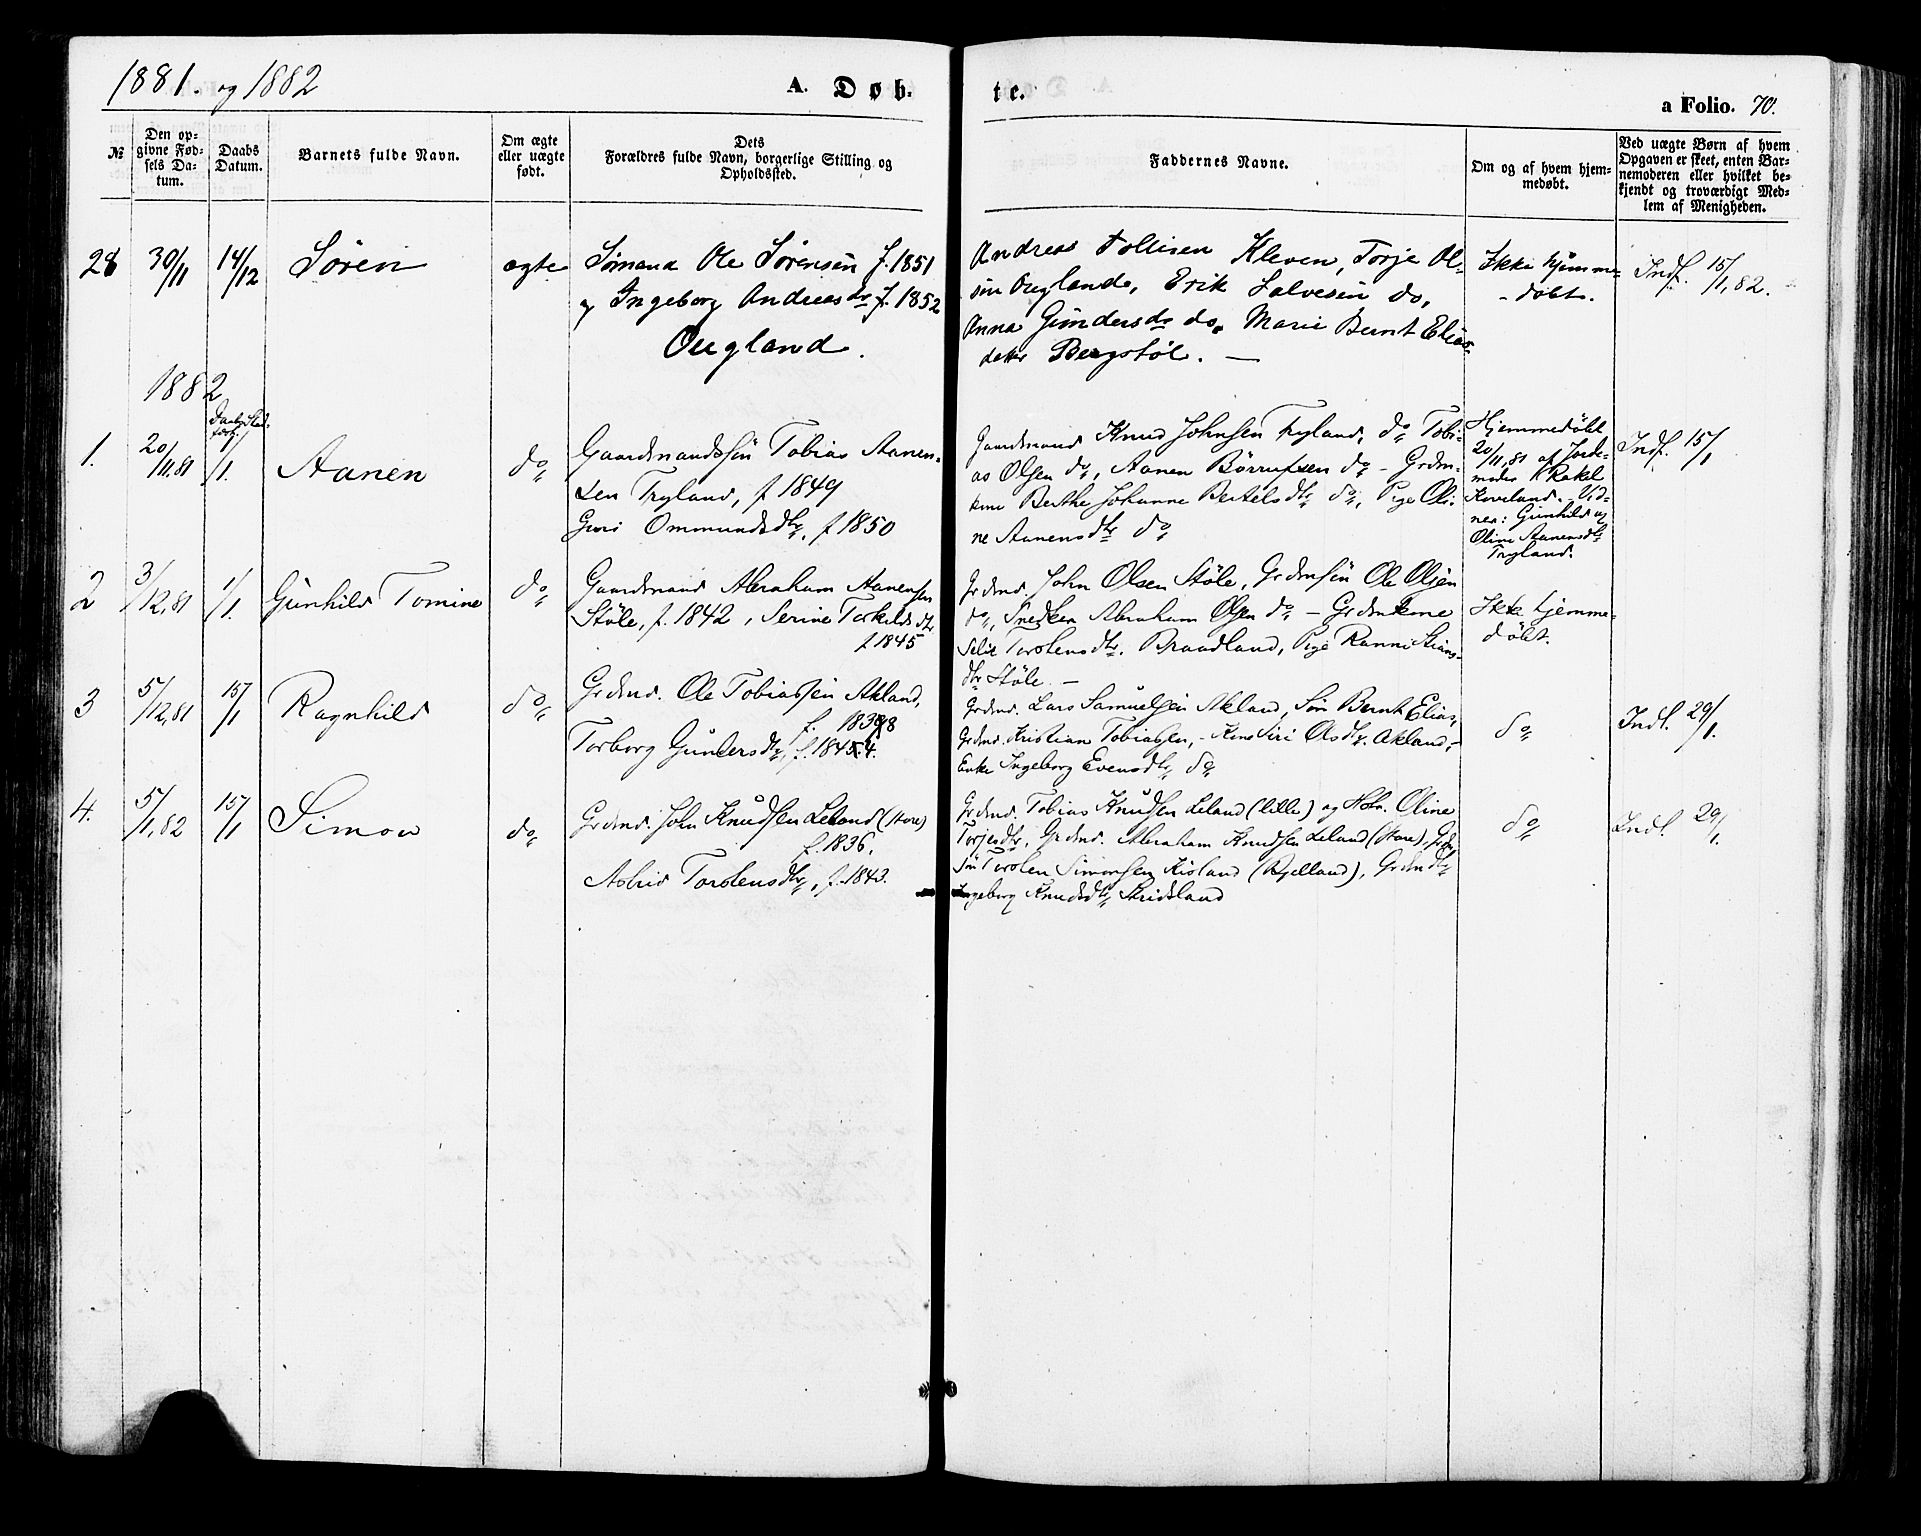 1881. og 1882
A. Døb-
te.
a Folio. 70.
№
Den op-
givne Fød-
sels Da-
tum.
Daabs
Datum.
Barnets fulde Navn.
Om ægte
eller uægte
født.
Dets
Forældres fulde Navn, borgerlige Stilling og
Opholdssted.
Faddernes Navne.
Om og af hvem hjem-
medøbt.
Ved uægte Børn af hvem
Opgaven er skeet, enten Bar-
nemoderen eller hvilket be-
kjendt og troværdigt Med-
lem af Menigheden.
28 30/11 14/12 Søren ægte
Sømand Ole Sørensen f. 1851
og Ingeborg Andreasdr f. 1852
Øugland.
Andreas Tollisen Kleven, Torje Ol-
sen Øuglande, Erik Salvesen do,
Anna Gundersdr do, Marie Bernt Elias-
datter Bergstøl. —
Ikke hjemme-
døbt.
Indf. 15/1, 82.
1882
1. 20/11,81 1/1. Aanen do
Gaardmandssøn Tobias Aanen-
sen Tryland, f 1849
Guri Ommundsdtr, f 1850
Gaardmand Knud Johnsen Tryland, do Tobi-
as Olsen do, Aanen Børrufsen do - Grdm-
kone Berthe Johanne Bertelsdtr do, Pige Oli-
ne Aanensdtr do
Hjemmedøbt
20/11,81 af Jorde-
moder Rakel
Koveland. - Vid-
ner: Gunhild og
Oline Aanensdtr
Tryland.
Indf. 15/1
2 3/12,81 1/1. Gunhild Tomine do
Gaardmand Abraham Aanensen
Støle, f. 1842, Serine Torkildsdtr
f 1845
Grdmd. John Olsen Støle, Grdmsøn Ole Olsen
do, Snedker Abraham Olsen do - Grdmkone
Selie Torstensdtr. Braadland, Pige Ranni Stians-
dtr Støle. —
Ikke hjemme-
døbt.
3 5/12,81 15/1 Ragnhild do
Grdmd. Ole Tobiassen Akland,
f. 1838
Torborg Gundersdtr, f. 1845 4.
Grdmd. Lars Samuelsen Akland, Søn Bernt Elias,
Grdmd. Kristian Tobiassen, - Kone Siri Olsdtr. Akland, -
Enke Ingeborg Evensdtr do
do
Indl. 29/1.
4. 5/1,82 15/1 Simon do
Grdmd. John Knudsen Leland (store)
f. 1836,
Astrid Torstensdtr, f. 1843.
Grdmd. Tobias Knudsen Leland (lille) og Hstr. Oline
Torjesdtr, Grdmd. Abraham Knudsen Leland (store), Grdm-
søn Torsten Simonsen Kisland (Bjelland), Grdmdtr
Ingeborg Knudsdtr Stridsland
do
Indl. 29/1.